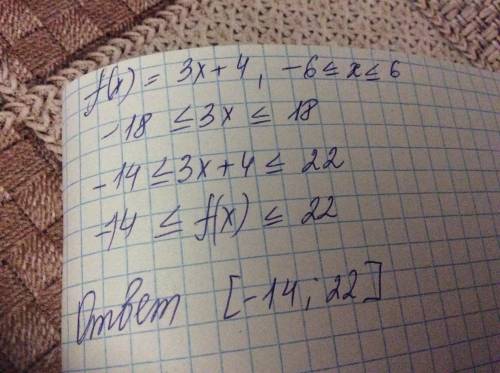 f(x) = 3x+4, -6≤x≤6
-18 ≤3x ≤ 18
-14≤3x+4≤ 22
-14 ≤ f(x) ≤ 22
Ответ [-14; 22]